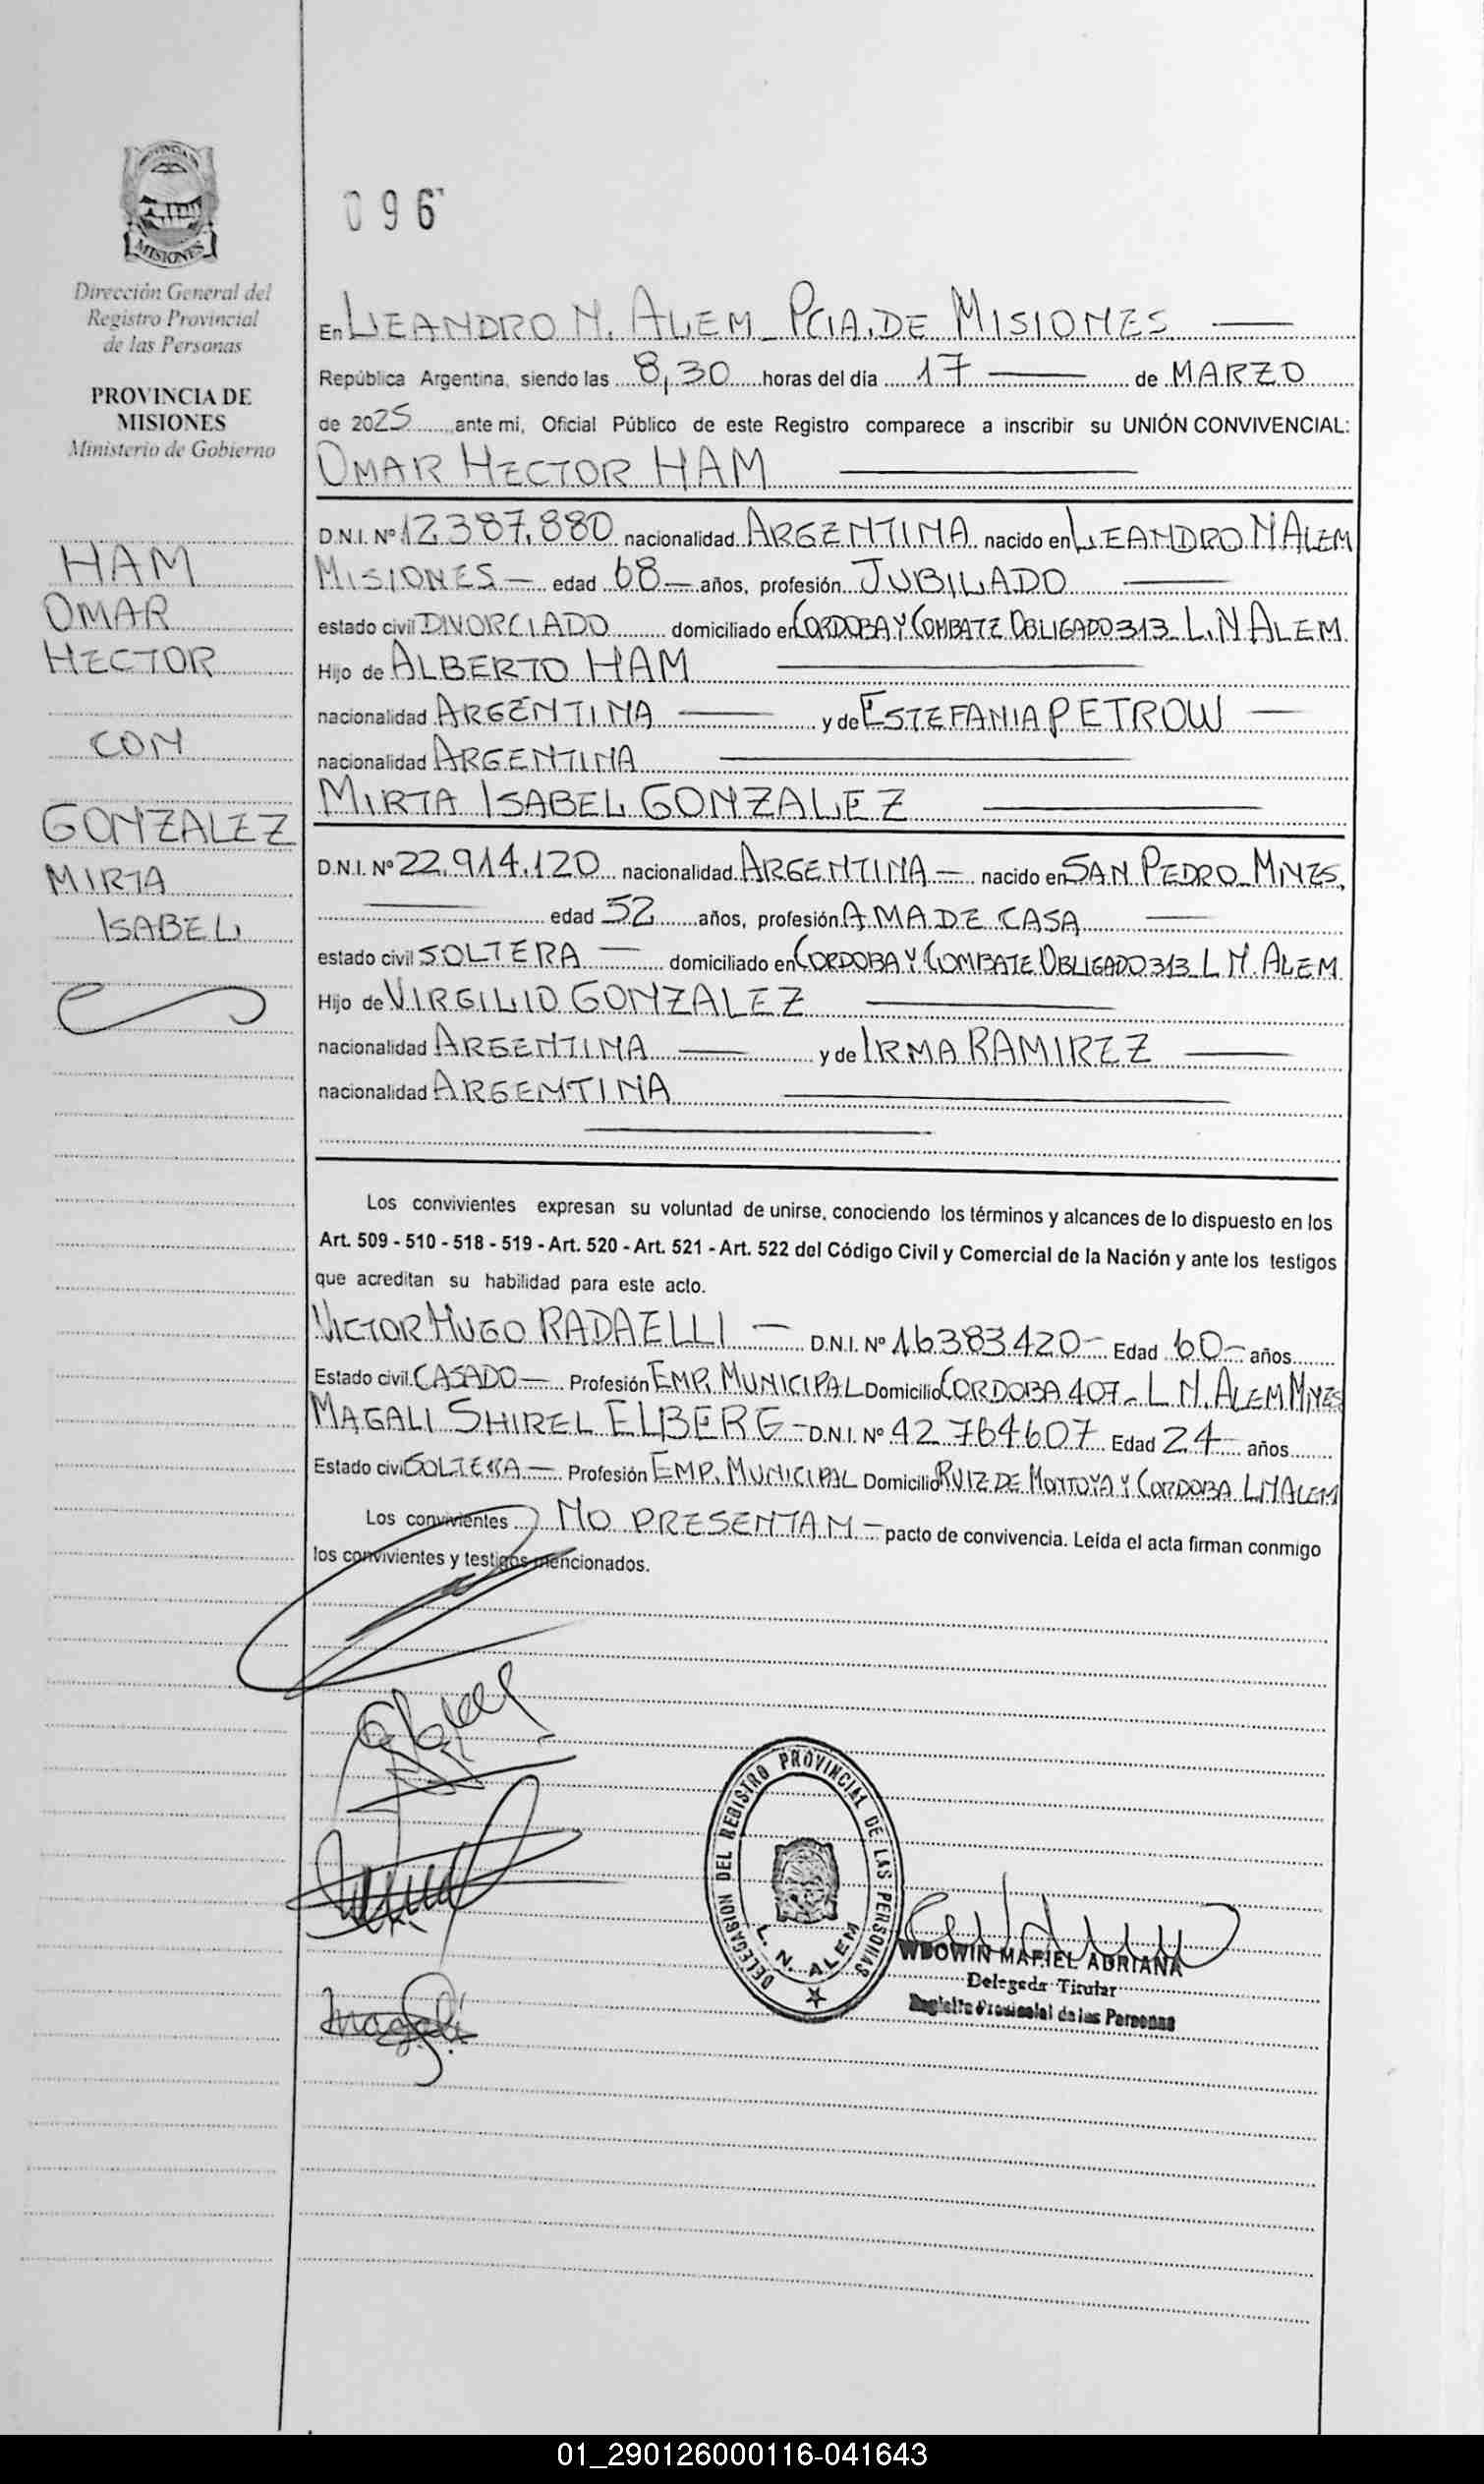 PROVINCIA DE
MISIONES
Dirección General del
Registro Provincial
de las Personas
PROVINCIA DE
MISIONES
Ministerio de Gobierno
HAM
OMAR
HECTOR
CON
GONZALEZ
MIRTA
ISABEL
096
En LEANDRO N. ALEM - PCIA. DE MISIONES
República Argentina, siendo las 8,30 horas del día 17 de MARZO
de 2025 ante mi, Oficial Público de este Registro comparece a inscribir su UNIÓN CONVIVENCIAL:
OMAR HECTOR HAM
D.N.I. Nº 12.387.880 nacionalidad ARGENTINA nacido en LEANDRO N ALEM
MISIONES - edad 68 - años, profesión JUBILADO
estado civil DIVORCIADO domiciliado en CORDOBA Y COMBATE OBLIGADO 313 L.N ALEM
Hijo de ALBERTO HAM
nacionalidad ARGENTINA y de ESTEFANIA PETROW
nacionalidad ARGENTINA
MIRTA ISABEL GONZALEZ
D.N.I. Nº 22.914.120 nacionalidad ARGENTINA - nacido en SAN PEDRO - MNES,
edad 52 años, profesión AMA DE CASA
estado civil SOLTERA domiciliado en CORDOBA Y COMBATE OBLIGADO 313 L N. ALEM
Hijo de VIRGILIO GONZALEZ
nacionalidad ARGENTINA y de IRMA RAMIREZ
nacionalidad ARGENTINA
Los convivientes expresan su voluntad de unirse, conociendo los términos y alcances de lo dispuesto en los
Art. 509 - 510 - 518 - 519 - Art. 520 - Art. 521 - Art. 522 del Código Civil y Comercial de la Nación y ante los testigos
que acreditan su habilidad para este acto.
VICTOR HUGO RADAELLI - D.N.I. Nº 16383420 - Edad 60 - años
Estado civil CASADO - Profesión EMP. MUNICIPAL Domicilio CORDOBA 407 - L N. ALEM MNES
MAGALI SHIREL ELBERG - D.N.I. Nº 42 764607 Edad 24 años
Estado civil SOLTERA - Profesión EMP. MUNICIPAL Domicilio RUIZ DE MONTOYA Y CORDOBA LN ALEM
Los convivientes NO PRESENTAN - pacto de convivencia. Leída el acta firman conmigo
los convivientes y testigos mencionados.
Magali
DELEGACION DEL REGISTRO PROVINCIAL DE LAS PERSONAS
L. N. ALEM
WDOWIN MARIEL ADRIANA
Delegada Titular
Registro Provincial de las Personas
01_290126000116-041643